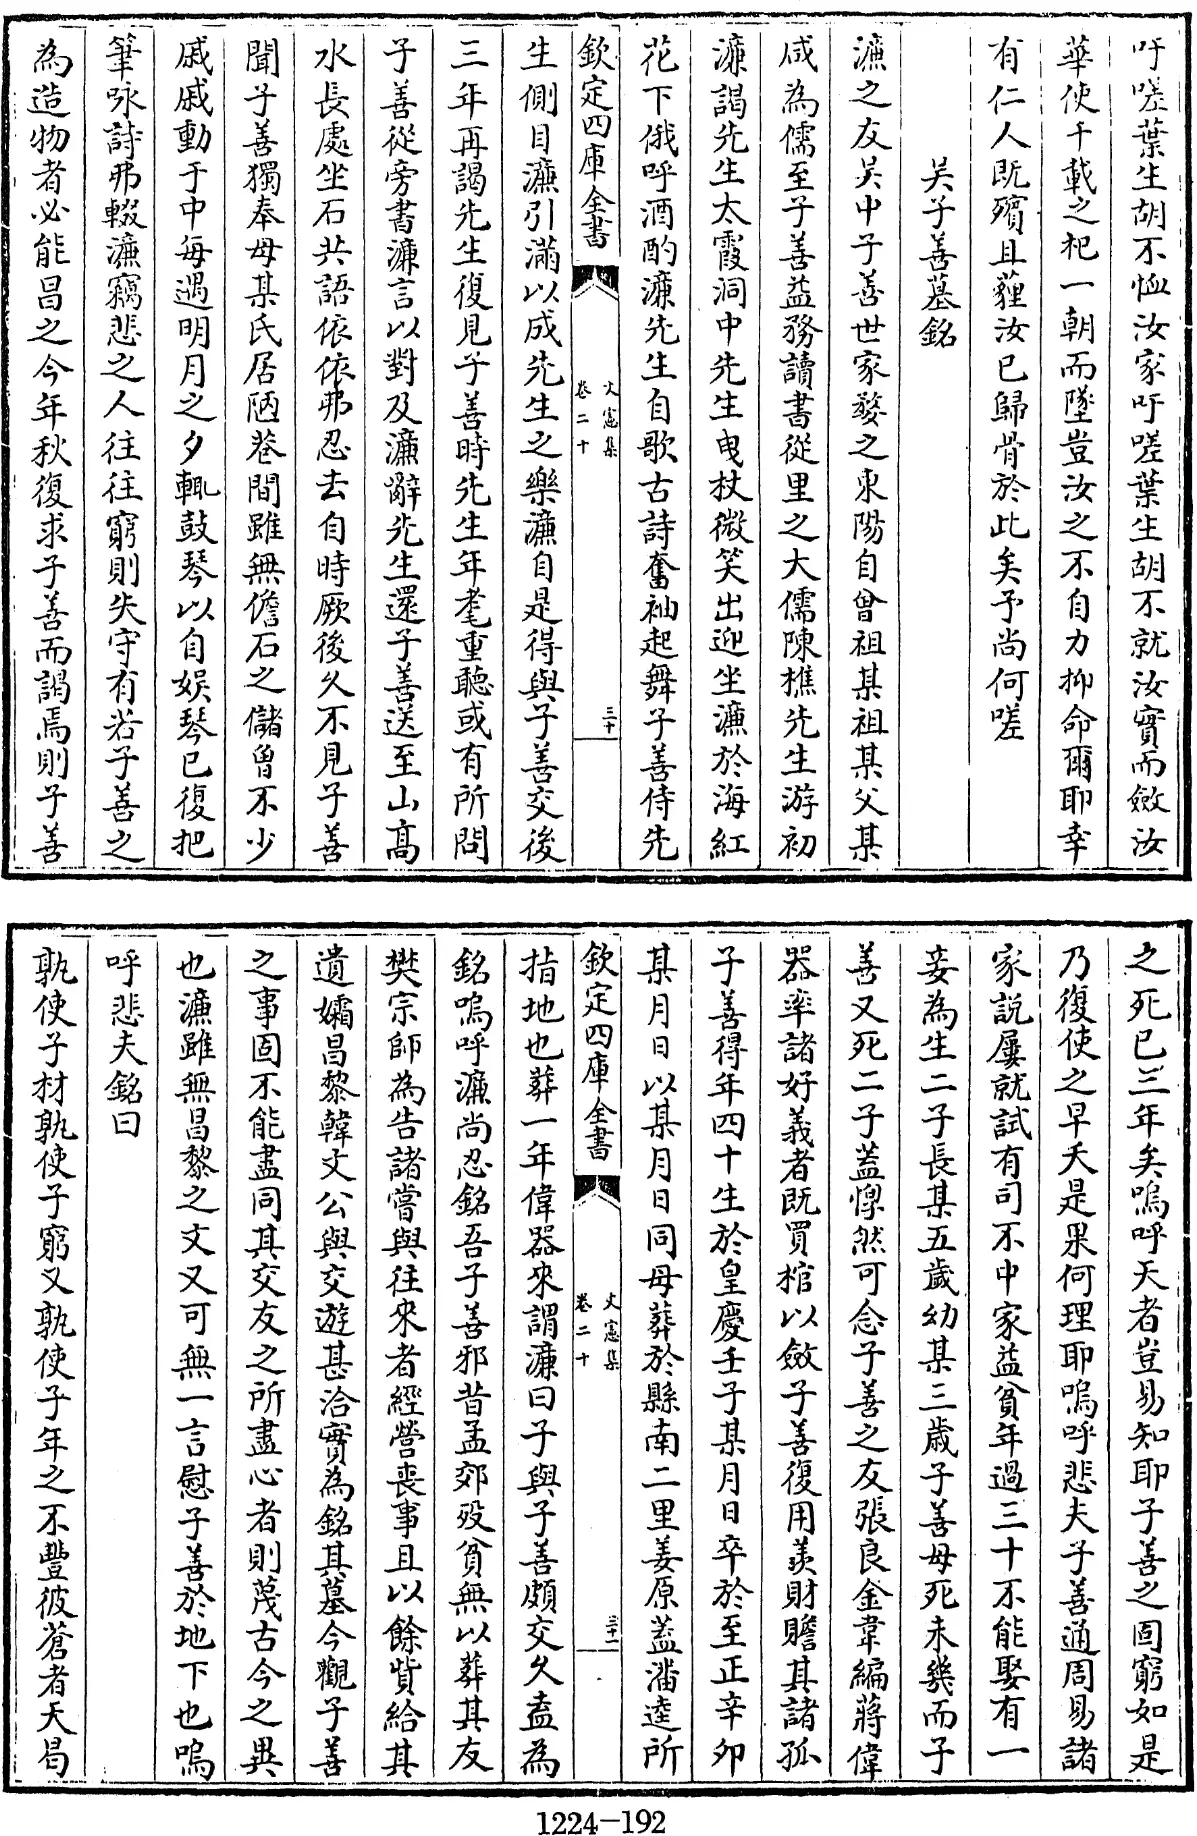 吁嗟葉生胡不恤汝家吁嗟葉生胡不就汝實而斂汝
華使千載之祀一朝而墜豈汝之不自力抑命爾耶幸
有仁人既殯且薶汝已歸骨於此矣予尚何嗟
吴子善墓銘
濂之友吴中子善世家婺之東陽自曾祖某祖某父某
咸為儒至子善益務讀書從里之大儒陳樵先生游初
濂謁先生太霞洞中先生曳杖微笑出迎坐濂於海紅
花下俄呼酒酌濂先生自歌古詩奮袖起舞子善侍先
欽定四庫全書
文憲集
卷二十
三十
生側目濂引滿以成先生之樂濂自是得與子善交後
三年再謁先生復見子善時先生年耄重聽或有所問
子善從旁書濂言以對及濂辭先生還子善送至山高
水長處坐石共語依依弗忍去自時厥後久不見子善
聞子善獨奉母某氏居陋巷間雖無儋石之儲曾不少
戚戚動于中每遇明月之夕輒鼓琴以自娱琴已復把
筆咏詩弗輟濂竊悲之人往往窮則失守有若子善之
為造物者必能昌之今年秋復求子善而謁焉則子善
之死已三年矣嗚呼天者豈易知耶子善之固窮如是
乃復使之早夭是果何理耶嗚呼悲夫子善通周易諸
家說屢就試有司不中家益貧年過三十不能娶有一
妾為生二子長某五歲幼某三歲子善母死未幾而子
善又死二子葢惸然可念子善之友張良金韋編蔣偉
器率諸好義者既買棺以斂子善復用羨財贍其諸孤
子善得年四十生於皇慶壬子某月日卒於至正辛卯
某月日以某月日同母葬於縣南二里姜原葢潘逵所
欽定四庫全書
文憲集
卷二十
三十一
指地也葬一年偉器來謂濂曰子與子善頗交久盍為
銘嗚呼濂尚忍銘吾子善邪昔孟郊殁貧無以葬其友
樊宗師為告諸嘗與往來者經營喪事且以餘貲給其
遺孀昌黎韓文公與交遊甚洽實為銘其墓今觀子善
之事固不能盡同其交友之所盡心者則蔑古今之異
也濂雖無昌黎之文又可無一言慰子善於地下也嗚
呼悲夫銘曰
孰使子材孰使子窮又孰使子年之不豐彼蒼者天曷
1224-192